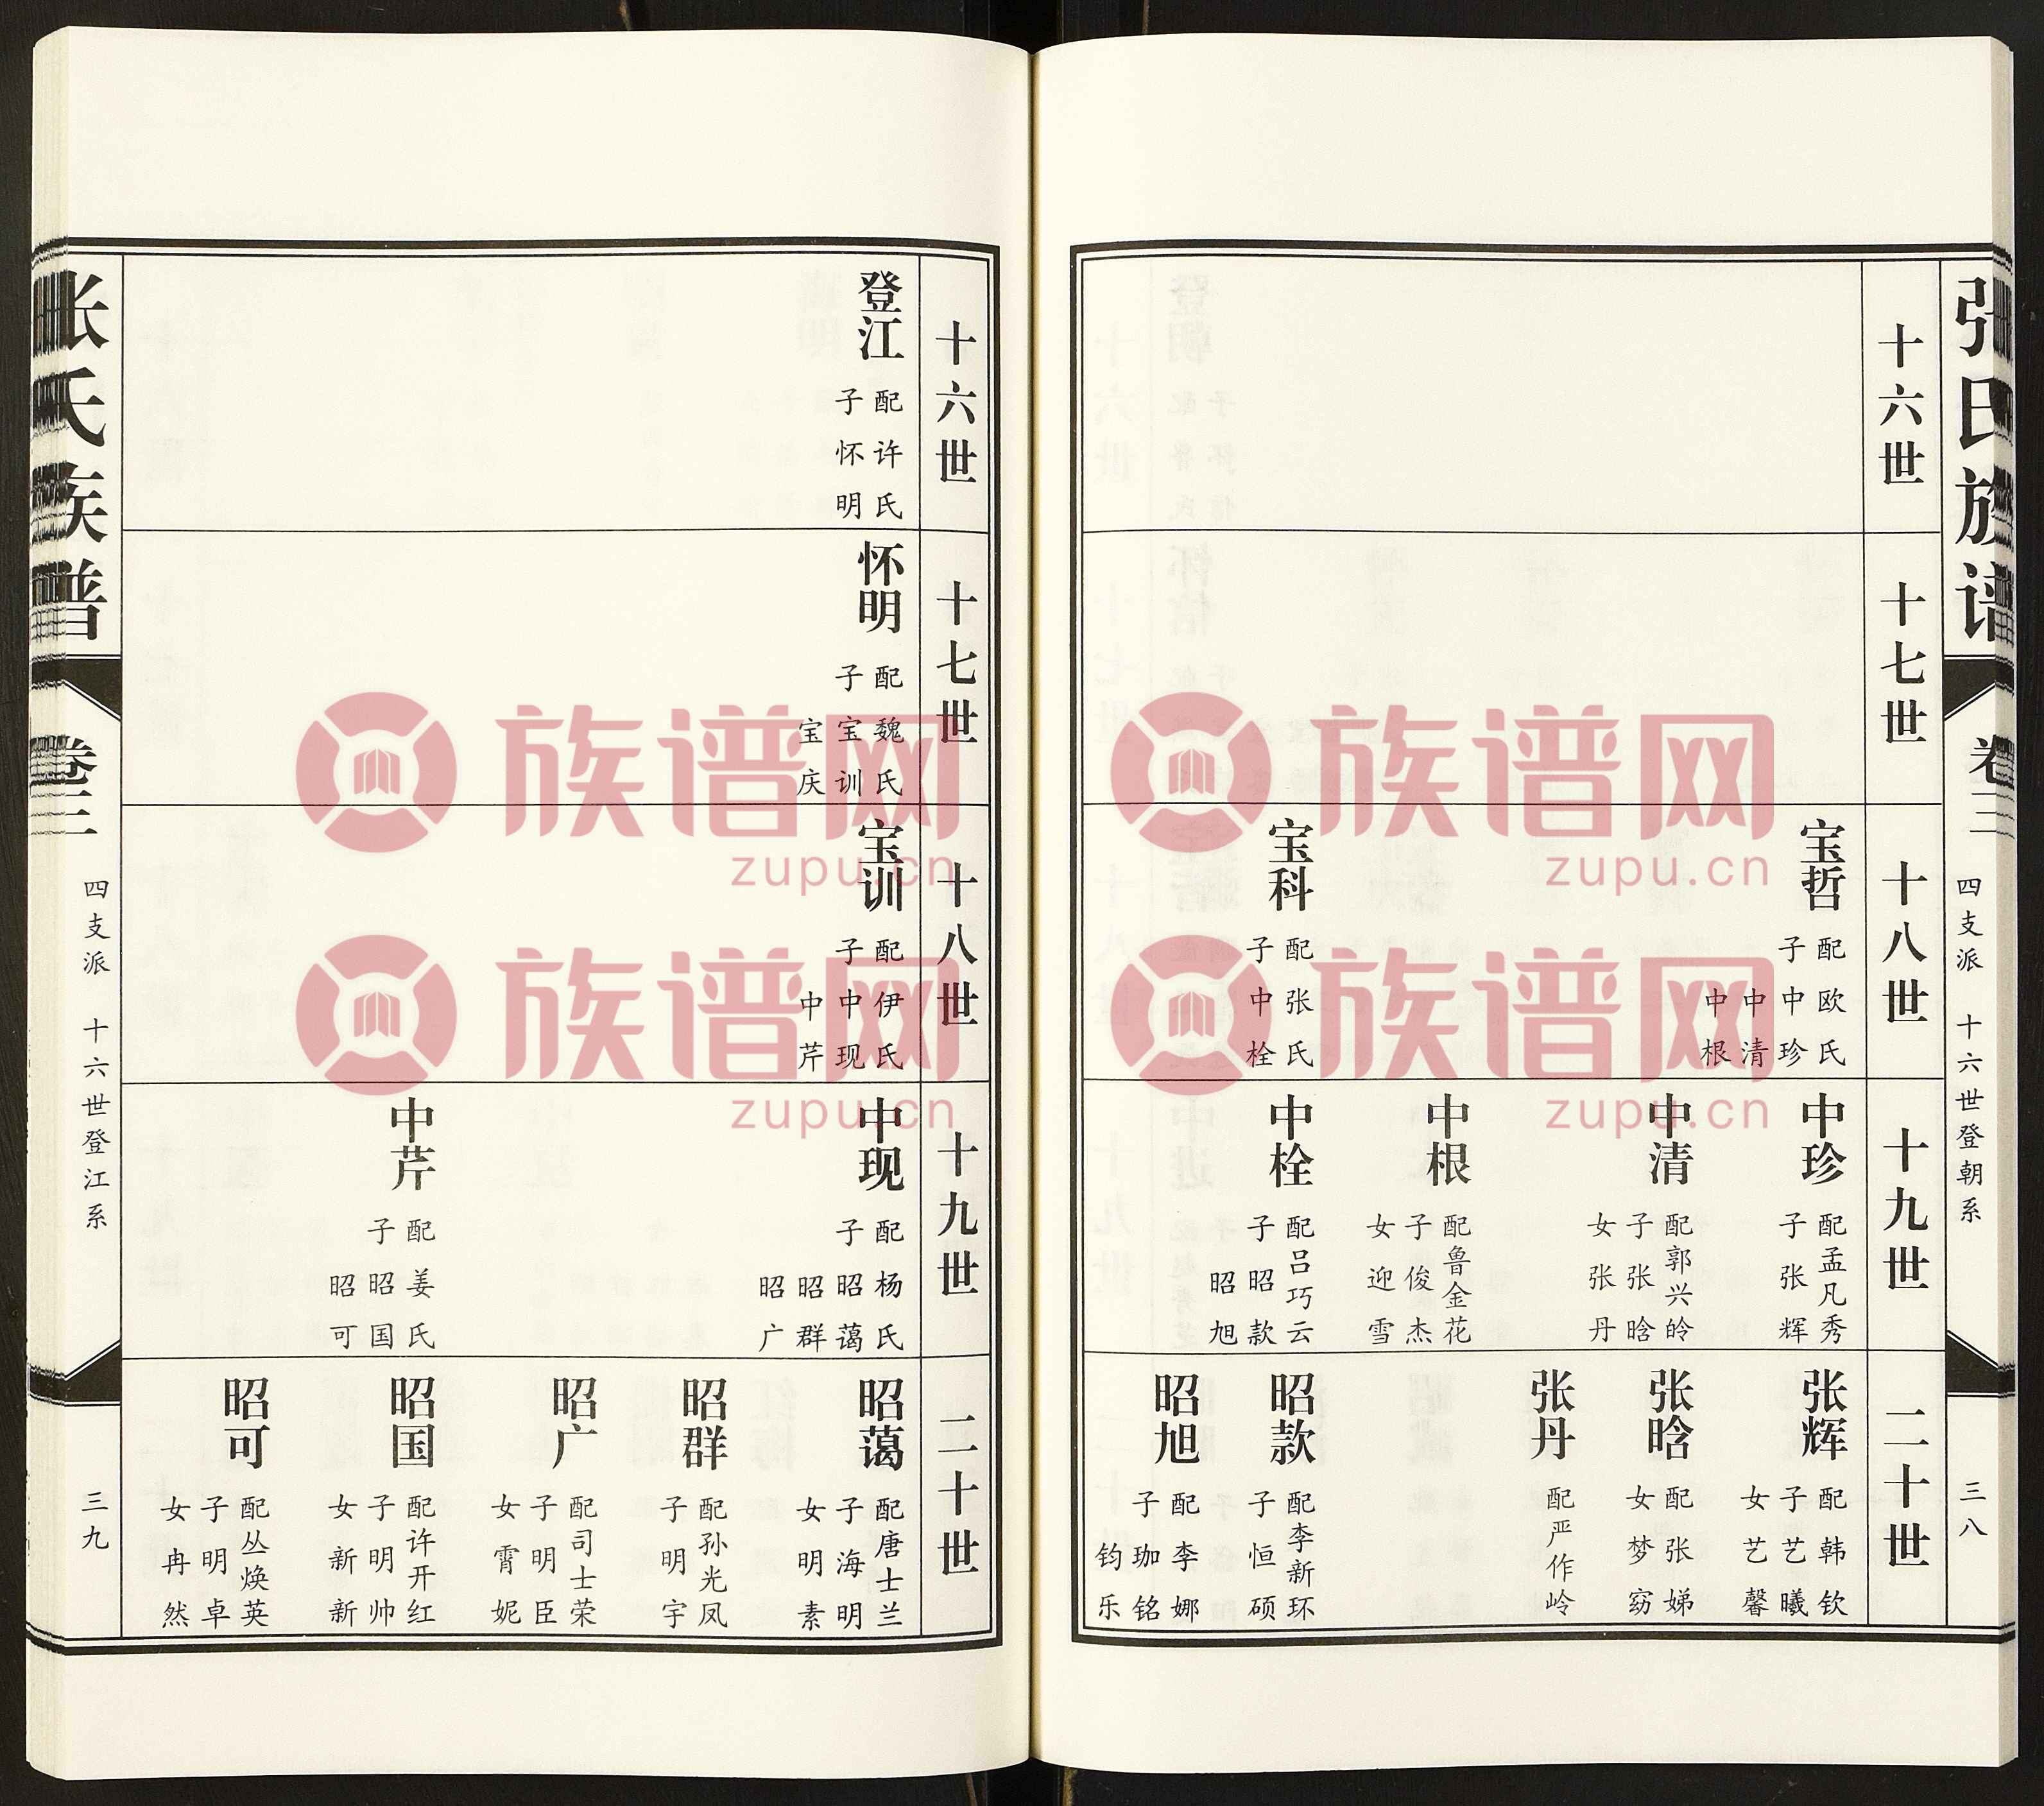 张氏族谱
卷三
四支派 十六世登朝系
三八
十六世
十七世
十八世
宝哲
配欧氏
子中珍
中清
中根
宝科
配张氏
子中栓
十九世
中珍
配孟凡秀
子张辉
中清
配郭兴皊
子张晗
女张丹
中根
配鲁金花
子俊杰
女迎雪
中栓
配吕巧云
子昭款
昭旭
二十世
张辉
配韩钦
子艺曦
女艺馨
张晗
配张娣
女梦窈
张丹
配严作岭
昭款
配李新环
子恒硕
昭旭
配李娜
子珈铭
钧乐
十六世
登江
配许氏
子怀明
十七世
怀明
配魏氏
子宝训
宝庆
十八世
宝训
配伊氏
子中现
中芹
十九世
中现
配杨氏
子昭蔼
昭群
昭广
中芹
配姜氏
子昭国
昭可
二十世
昭蔼
配唐士兰
子海明
女明素
昭群
配孙光凤
子明宇
昭广
配司士荣
子明臣
女霄妮
昭国
配许开红
子明帅
女新新
昭可
配丛焕英
子明卓
女冉然
张氏族谱
卷三
四支派 十六世登江系
三九
族谱网
zupu.cn
族谱网
zupu.cn
族谱网
zupu.cn
族谱网
zupu.cn